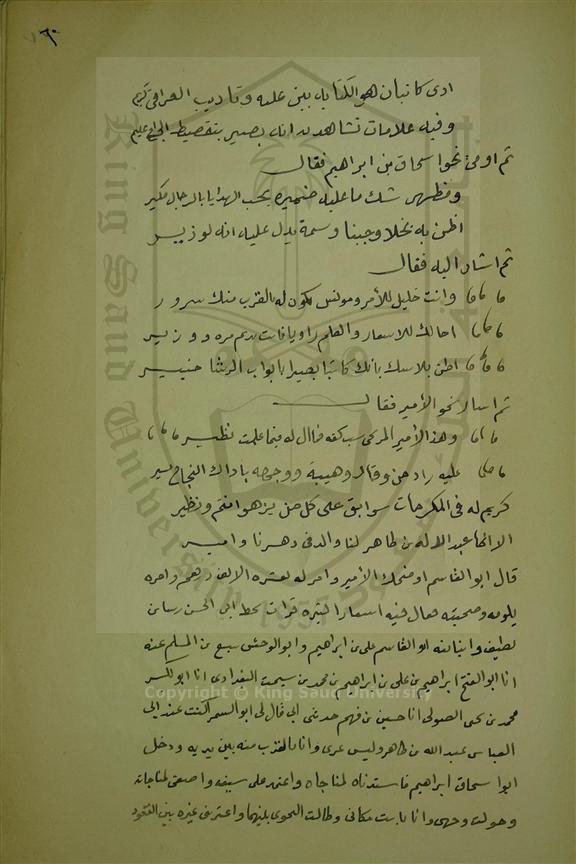 ٦٠
ارى كاتبان هو الكتابه بين عليه وتاديب العراقي كريم
وفيه علامات تشاهد بد انه بصير بتقسيط الخراج عليم
ثم اومى نحو اسحاق بن ابراهيم فقال
ومظهر شك ما عليه ضميره يحب الهدايا بالرجال مكير
اظن به بخلا وجبنا وسمة يدل عليه انه لوزير
ثم اشار اليه فقال
وانت خليل للأمر ومونس يكون له بالقرب منك سرور
احالك للاسعار والعلم راويا فانت نديم مره ووزير
اظن بلا شك بانك كاتبا بصيرا بابواب الرشا خبير
ثم اسار نحو الأمير فقال
وهذا الأمير المرتجى سيب كفه فما ان له فيما علمت نظير
عليه رداء من وقار وهيبة ووجهه باداك النجاح بشير
كريم له في المكرمات سوابق على كل من يزهو انتم ونظير
الا انما عبد الله بن طاهر لنا والد في دهرنا وامير
قال ابو القاسم اوضحك الأمير وامر له بعشره الالف درهم وامره
بلوزمه وصحبته فقال فيه اسعارا كثيره قرات بخط ابي الحسن رسا بن
نظيف وانبا ابو القاسم علي بن ابراهيم وابو الوحش سبيع بن المسلم عنه
انا ابو الفتح ابراهيم بن علي بن ابراهيم بن محمد بن سيبخت البغدادي انا ابو بكر
محمد بن يحيى الصولي انا حسين بن فهم حدثني ابي قال لي ابو السمراكنت عند ابي
العباس عبد الله بن طاهر وليس غيري وانا بالقرب منه بين يديه ودخل
ابو اسحاق ابراهيم فاستدناه لمناجاه واعتمد على سيفه واصغى لمناجاته
وحولت وجهي وانا ثابت مكاني وطالت النجوى بينهما واعترتني غيره بين القعود
Copyright © King Saud University
King Saud University
1957